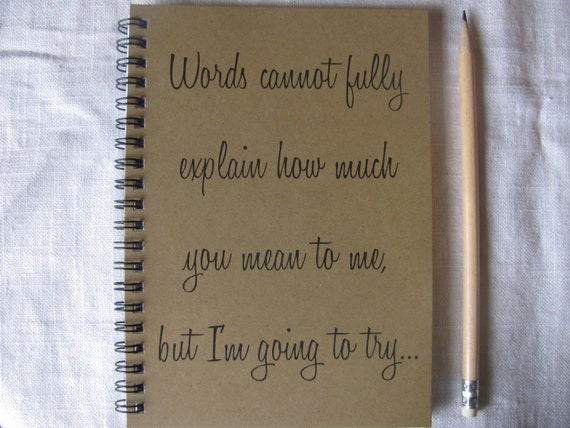 Words cannot fully
explain how much
you mean to me,
but I'm going to try...